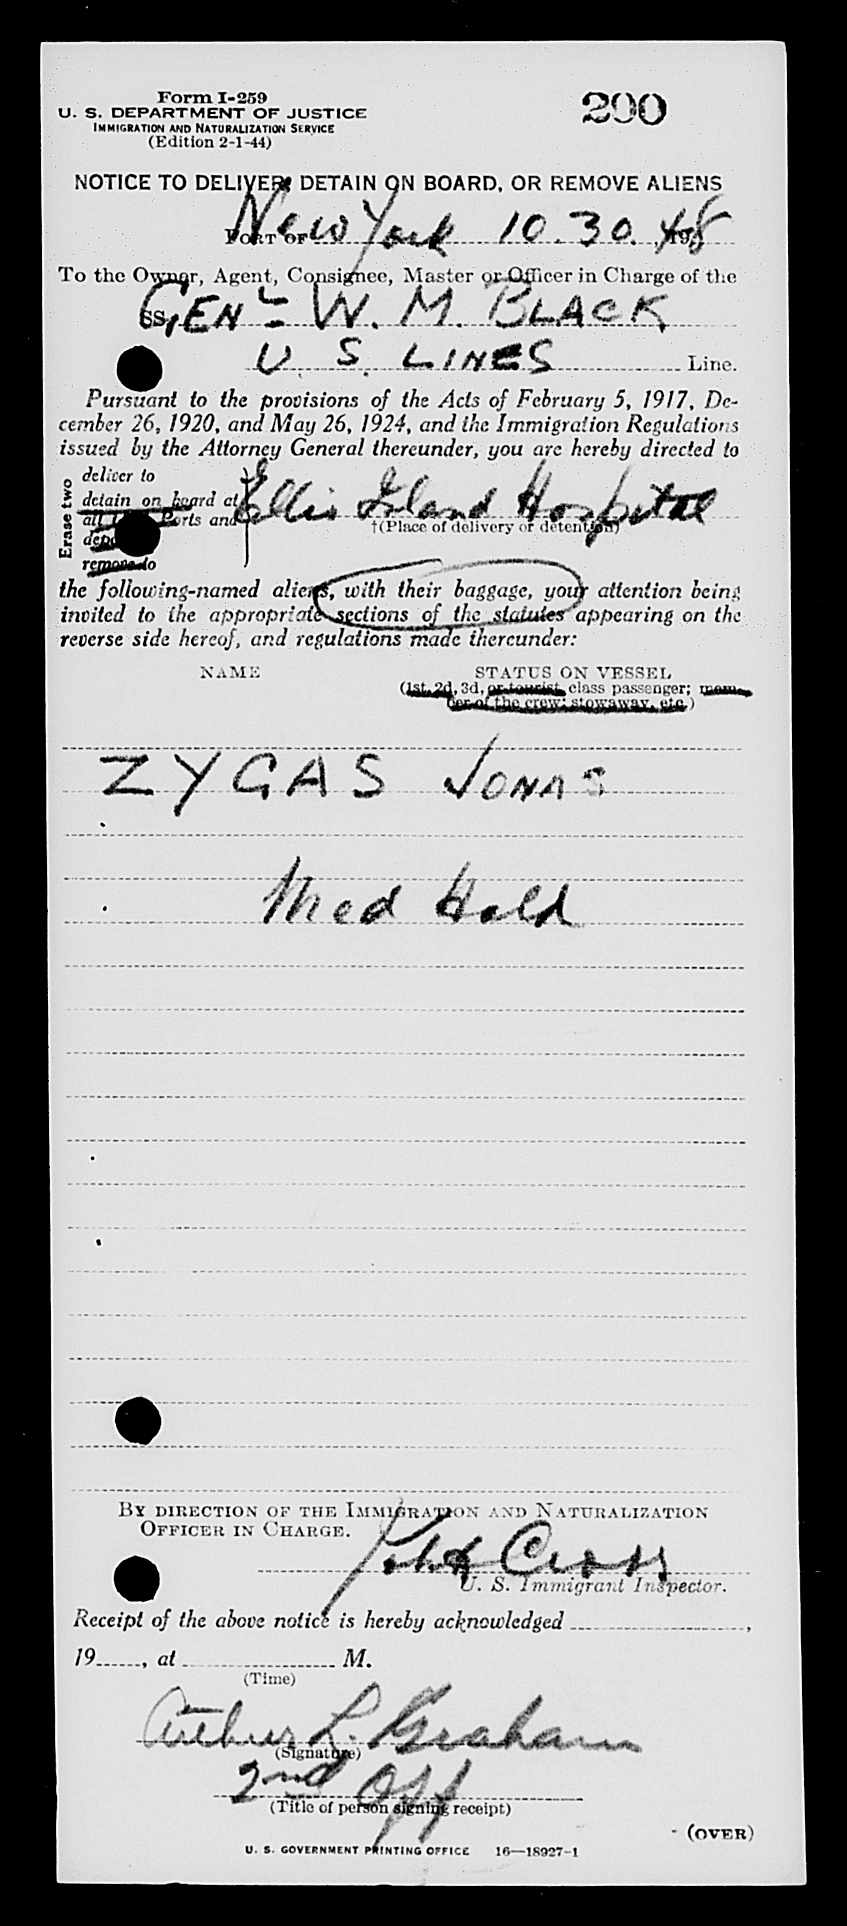 Form I-259
U. S. DEPARTMENT OF JUSTICE
IMMIGRATION AND NATURALIZATION SERVICE
(Edition 2-1-44)
200
NOTICE TO DELIVER, DETAIN ON BOARD, OR REMOVE ALIENS
PORT OF New York 10.30.48
To the Owner, Agent, Consignee, Master or Officer in Charge of the
SS GENL W. M. BLACK
U. S. LINES Line.
Pursuant to the provisions of the Acts of February 5, 1917, De-
cember 26, 1920, and May 26, 1924, and the Immigration Regulations
issued by the Attorney General thereunder, you are hereby directed to
Erase two
deliver to
detain on board at
all Ports and
remove to
Ellis Island Hospital
†(Place of delivery or detention)
the following-named aliens, with their baggage, your attention being
invited to the appropriate sections of the statutes appearing on the
reverse side hereof, and regulations made thereunder:
NAME STATUS ON VESSEL
(1st, 2d, 3d, or tourist class passenger; mem-
ber of the crew; stowaway, etc.)
ZYGAS JONAS
Med Hold
BY DIRECTION OF THE IMMIGRATION AND NATURALIZATION
OFFICER IN CHARGE.
Cross
U. S. Immigrant Inspector.
Receipt of the above notice is hereby acknowledged ,
19 , at M.
(Time)
Arthur L. Graham
(Signature)
2nd Off
(Title of person signing receipt)
(OVER)
U. S. GOVERNMENT PRINTING OFFICE 16—18927-1